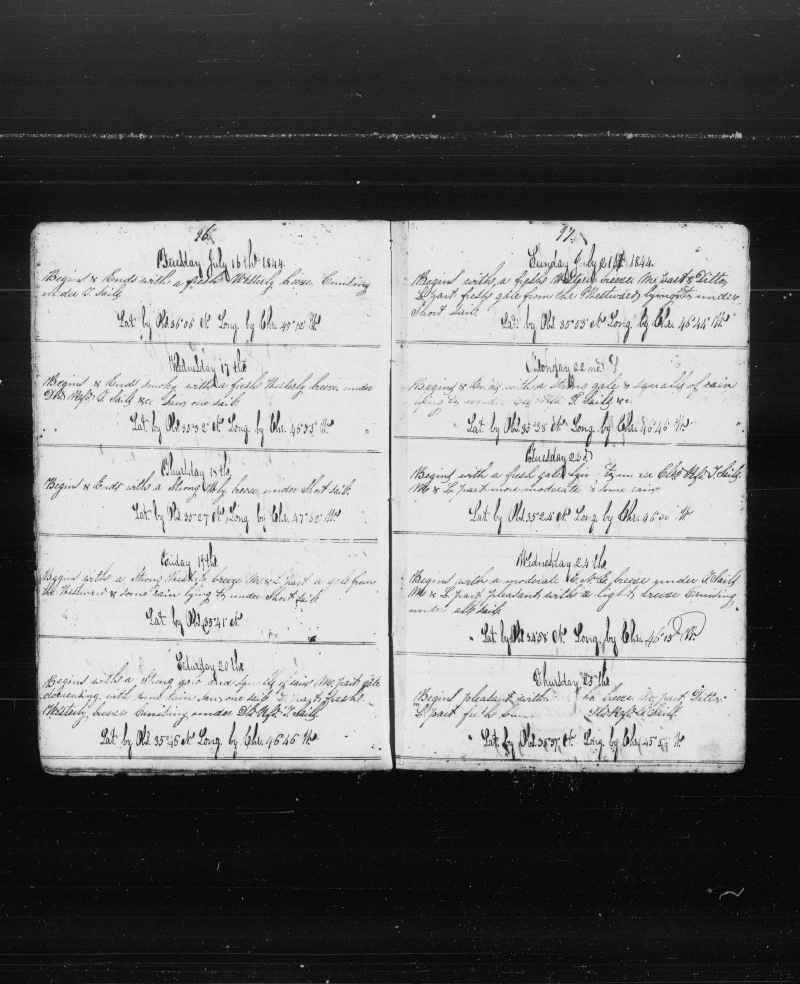 96.
Tuesday July 16th 1844.
Begins & Ends with a fresh Westerly breeze Cruising
under T. Sails
Lat. by Obs 35°05 N. Long. by Chr. 47°12 W.
Wednesday 17th
Begins & Ends smoky with a fresh Westerly breeze under
Dbl Reft T. Sails &c. Saw one sail.
Lat. by Obs 35°32 N. Long. by Chr. W.
Thursday 18th.
Begins & Ends with a Strong breeze, under Short sail.
Lat. by Obs 35°27 N. Long. by Chr. 47°32 W.
Friday 19th.
Begins with a Strong Westerly breeze M. & L. part a gale from
the Westward & some rain lying to under Short sail.
Lat. by Obs 35°41 N.
Saturday 20th.
Begins with a Strong gale and squally of rain, Me. part gale
with some rain saw one sail L. part fresh
Westerly breeze Cruising under Dbl Reft T. Sails
Lat. by Obs. 35°45 N. Long. by Chr. 46°46 W.
97.
Sunday July 21st 1844.
Begins with a fresh Western breeze Me part Ditto,
L. part fresh gale from the Westward lying to under
Short sail.
Lat. by Obs 35°53 N. Long. by Chr. 46°44 W.
Monday 22nd
Begins & Ends with a Strong gale & squalls of rain
lying to under Reft T. Sails &c.
Lat. by Obs 35°38 N. Long. by Chr. 46°46 W.
Tuesday 23d
Begins with a fresh gale lying to under Clo. Reft T. Sails.
M. & L. part more moderate & some rain
Lat. by Obs 35°24 N. Long. by Chr. W.
Wednesday 24th.
Begins with a moderate breeze under T. Sails
M. & L. part pleasant with a light breeze Cruising
under all sail.
Lat. by Obs 35°38 N. Long. by Chr. 46°13 W.
Thursday 25th.
Begins pleasant with breeze Me part Ditto.
L. part fresh Dbl Reft T. Sails.
Lat. by Obs N. Long. by Chr. W.